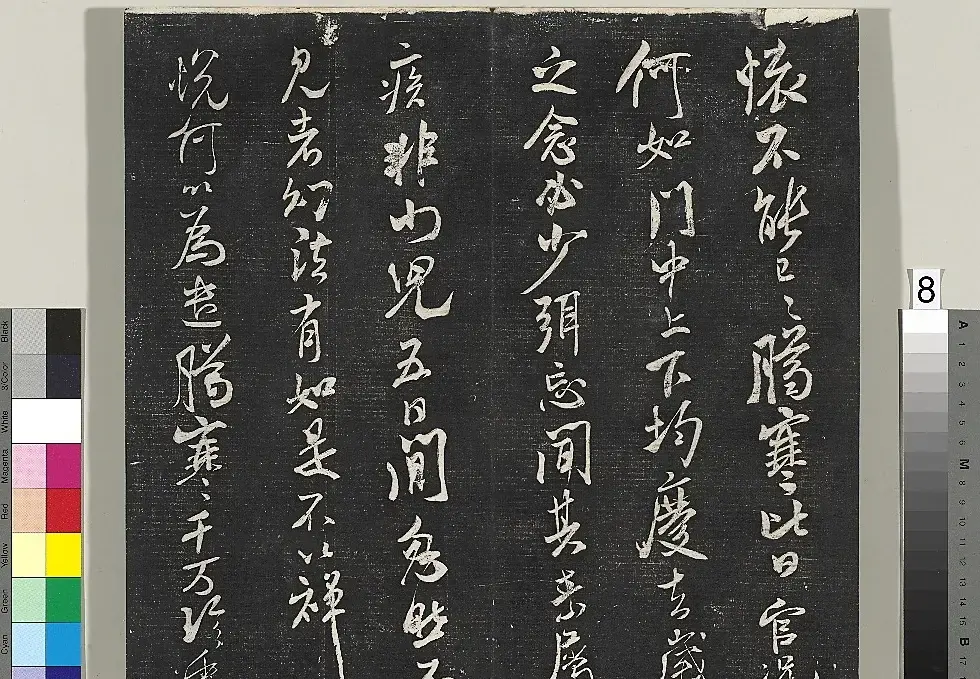 懷不能已〻臈寒此日官況
何如門中上下均慶去歲
之念必少頭忘間其素屬
疾非小児五日間忽然不
見者幻法有如是不以禅
悦何以為遣臈寒〻千万珎重
8
Black
3/Color
White
Magenta
Red
Yellow
Green
Cyan
A 1 2 3 4 5 6 M 8 9 10 11 12 13 14 15 B 17